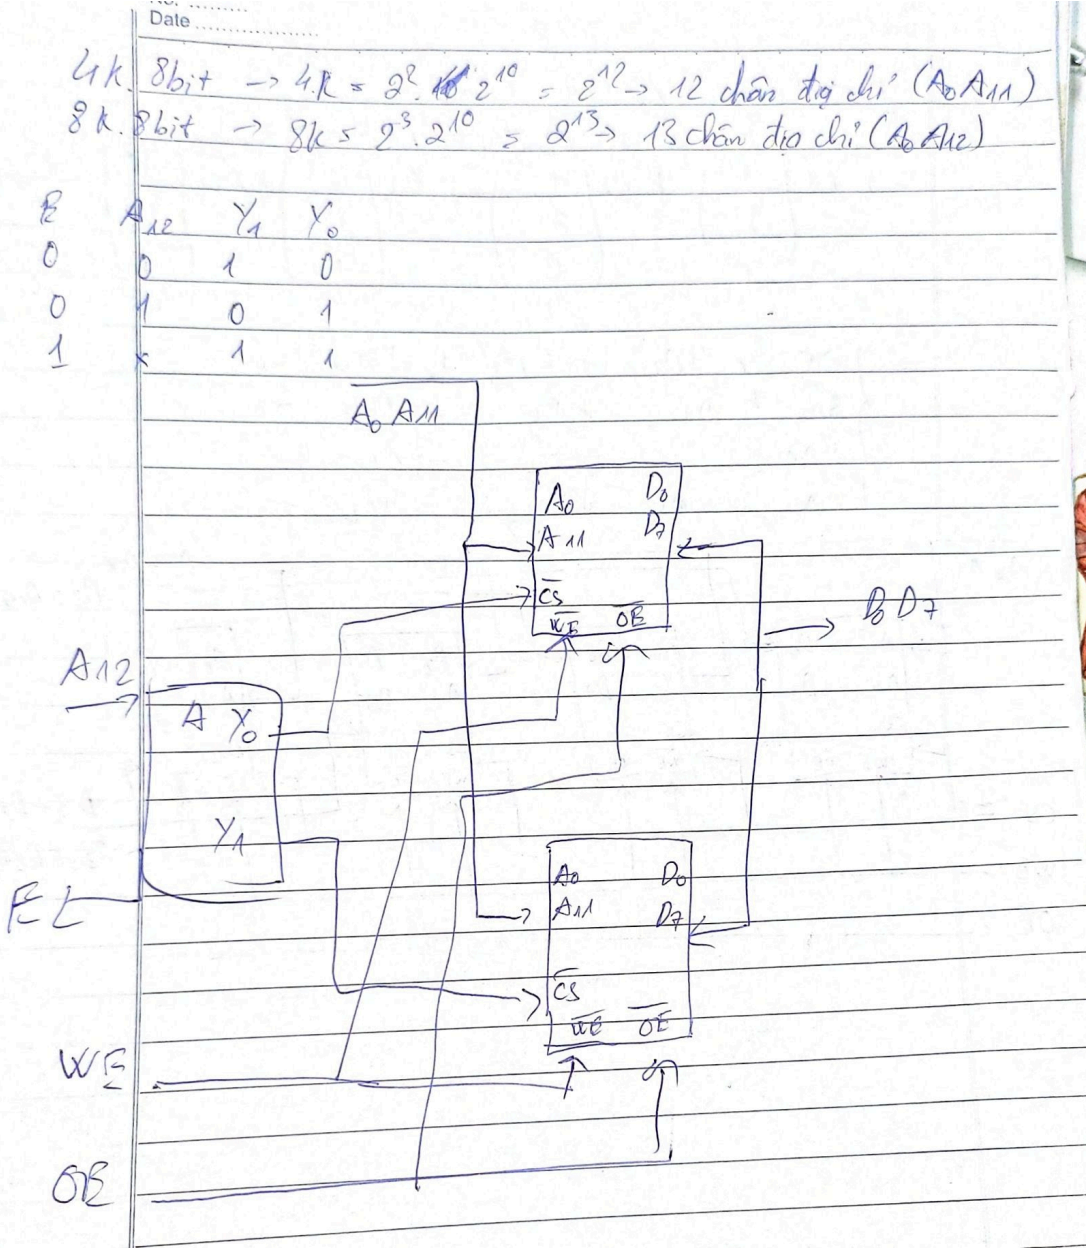 No. ..........
Date ....................
4k. 8bit → 4.k = 2². 2¹⁰ = 2¹² → 12 chân địa chỉ (A₀A₁₁)
8k. 8bit → 8k = 2³.2¹⁰ = 2¹³ → 13 chân địa chỉ (A₀A₁₂)
E A₁₂ Y₁ Y₀
0 0 1 0
0 1 0 1
1 x 1 1
A₀ A₁₁
A₀ D₀
A₁₁ D₇
C̅S̅
W̅E̅ O̅E̅
D₀ D₇
A12
A Y₀
Y₁
A₀ D₀
A₁₁ D₇
E
C̅S̅
W̅E̅ O̅E̅
WE
OE